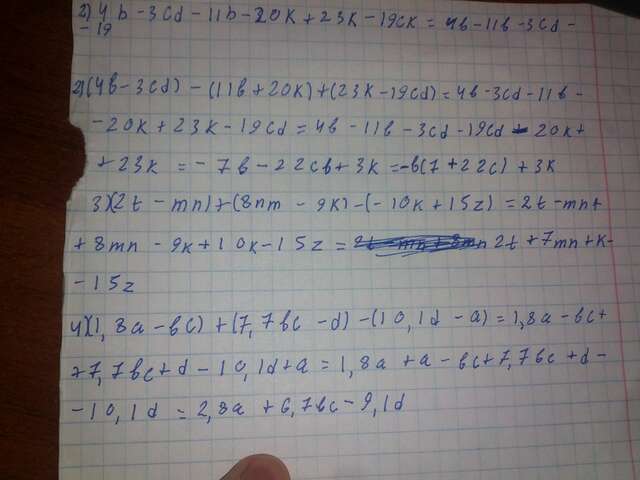 2) 4b - 3cd - 11b - 20k + 23k - 19ck = 4в - 11в - 3cd -
- 19
2)(4в - 3cd) - (11в + 20k) + (23k - 19cd) = 4в - 3cd - 11в -
- 20k + 23k - 19cd = 4в - 11в - 3cd - 19cd - 20k +
+ 23k = - 7в - 22cв + 3k = -в(7 + 22c) + 3k
3)(2t - mn) + (8nm - 9k) - (- 10k + 15z) = 2t - mn +
+ 8mn - 9k + 10k - 15z = 2t + 7mn + k -
- 15z
4)(1,8a - вc) + (7,7вc - d) - (10,1d - a) = 1,8a - вc +
+ 7,7вc + d - 10,1d + a = 1,8a + a - вc + 7,7вc + d -
- 10,1d = 2,8a + 6,7вc - 9,1d